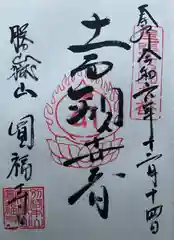 奉拝 令和六年十二月十四日
十一面観世音
勝嶽山 圓福寺